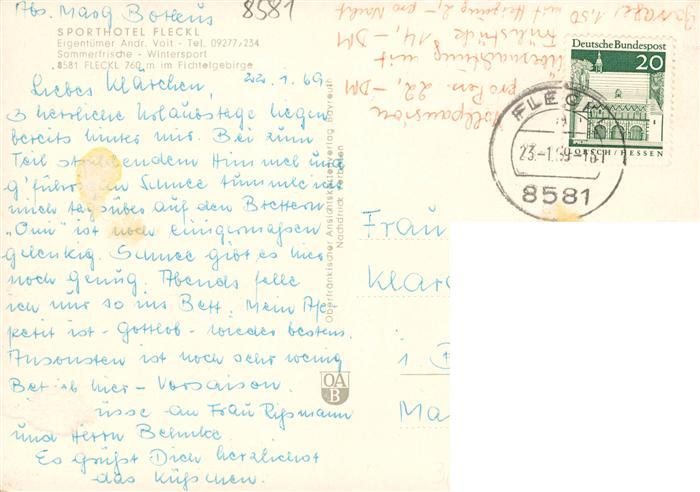 Abs. Marg Botens
8581
SPORTHOTEL FLECKL
Eigentümer Andr. Voit - Tel. 09277/234
Sommerfrische - Wintersport
8581 FLECKL 760 m im Fichtelgebirge
Liebes Klärchen, 22.1.69
3 herrliche Urlaubstage liegen
bereits hinter mir. Bei zum
Teil strahlendem Himmel und
g'führ Schnee tummle ich
mich tagsüber auf den Brettern
"Omi" ist noch einigermaßen
gelenkig. Schnee gibt es hier
noch genug. Abends falle
ich nur so ins Bett. Mein Ap-
petit ist - Gottlob - wieder bestens.
Ansonsten ist noch sehr wenig
Betrieb hier - Vorsaison.
üsse an Frau Rißmann
und Herrn Behnke
Es grüßt Dich herzlichst
das Küßchen.
Oberfränkischer Ansichtskartenverlag Bayreuth
Nachdruck verboten
OA
B
Garage 1,50 mit Heizung 2,- pro Nacht
Übernachtung mit
Frühstück 14,- DM
Vollpension
pro Pers. 22,- DM
Deutsche Bundespost
20
LORSCH/HESSEN
FLECKL
23.-1.69-16
8581
Frau
Klär
i
Ma